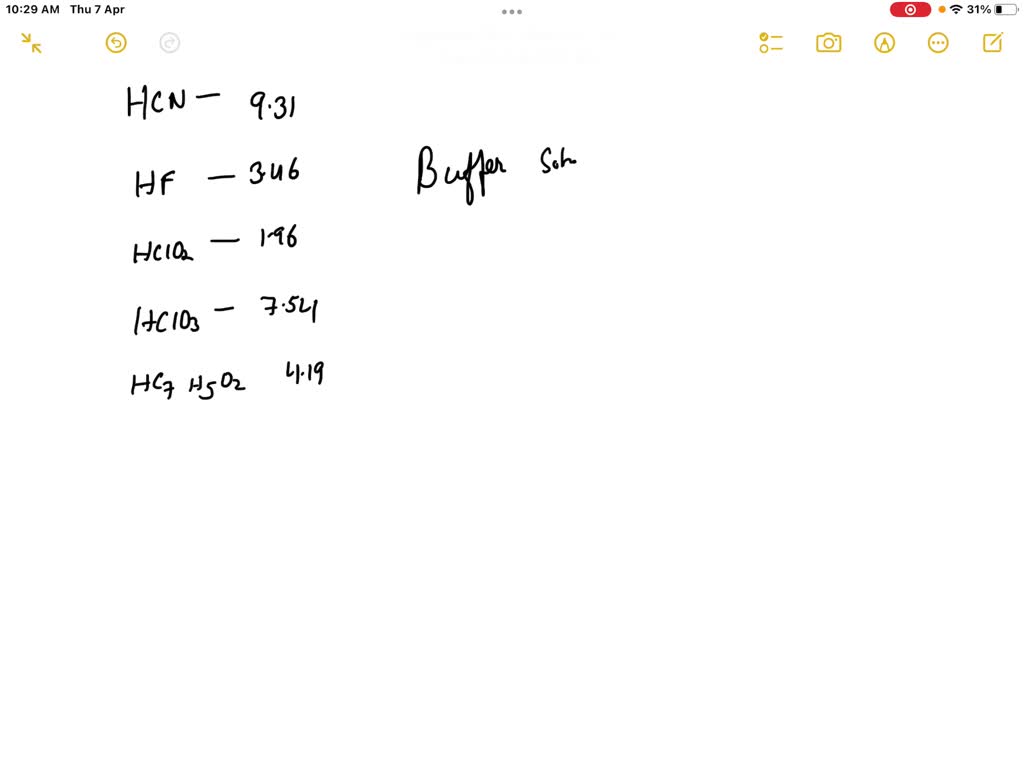 10:29 AM Thu 7 Apr
31%
HCN — 9.31
HF — 3.46
Buffer Soln
HClO2 — 1.96
HClO3 — 7.54
HC7 H5O2 4.19